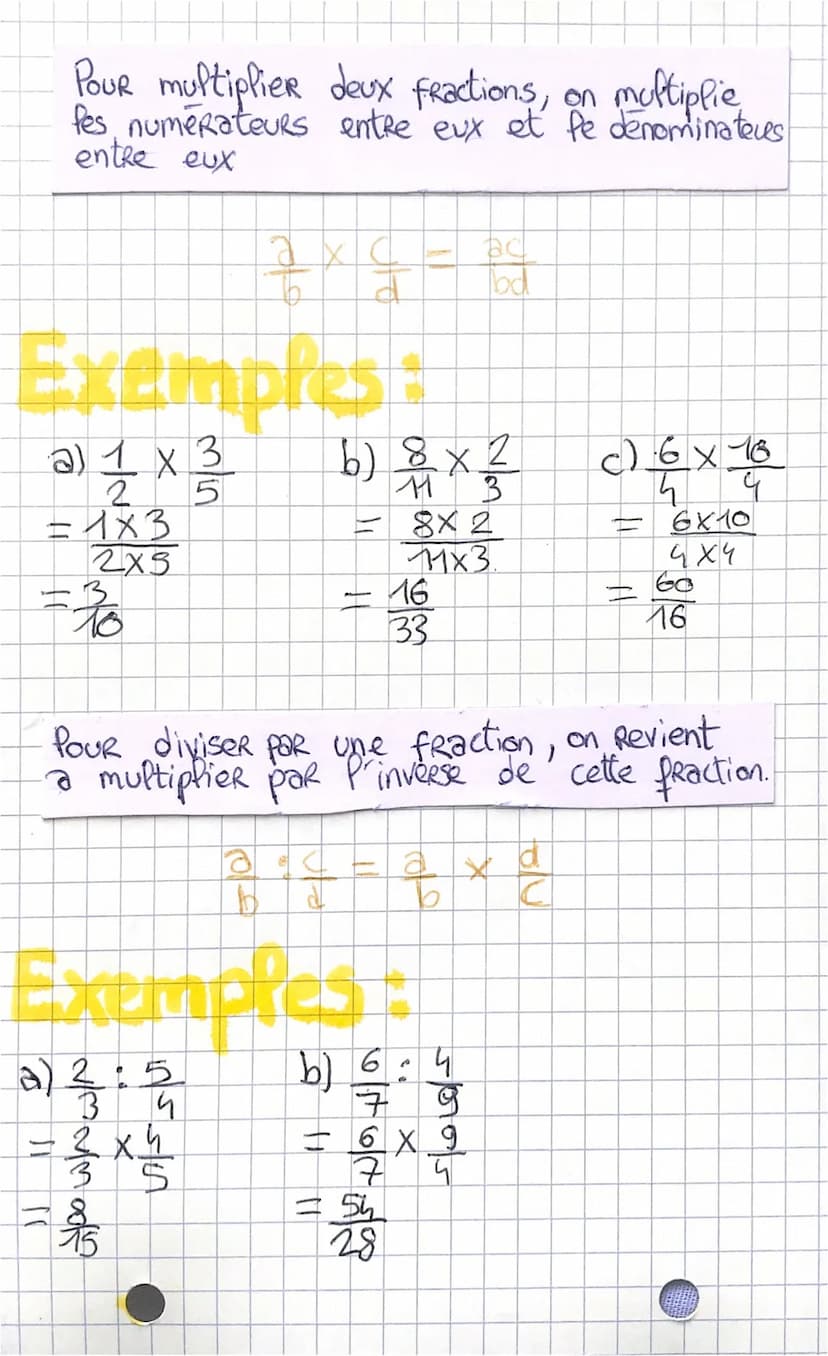 Pour multiplier deux fractions, on multiplie
les numérateurs entre eux et le dénominateurs
entre eux
a/b × c/d = ac/bd
Exemples :
a) 1/2 × 3/5
= 1×3/2×5
= 3/10
b) 8/11 × 2/3
= 8×2/11×3
= 16/33
c) 6/4 × 10/4
= 6×10/4×4
= 60/16
Pour diviser par une fraction, on revient
a multiplier par l'inverse de cette fraction.
a/b : c/d = a/b × d/c
Exemples :
a) 2/3 : 5/4
= 2/3 × 4/5
= 8/15
b) 6/7 : 4/9
= 6/7 × 9/4
= 54/28